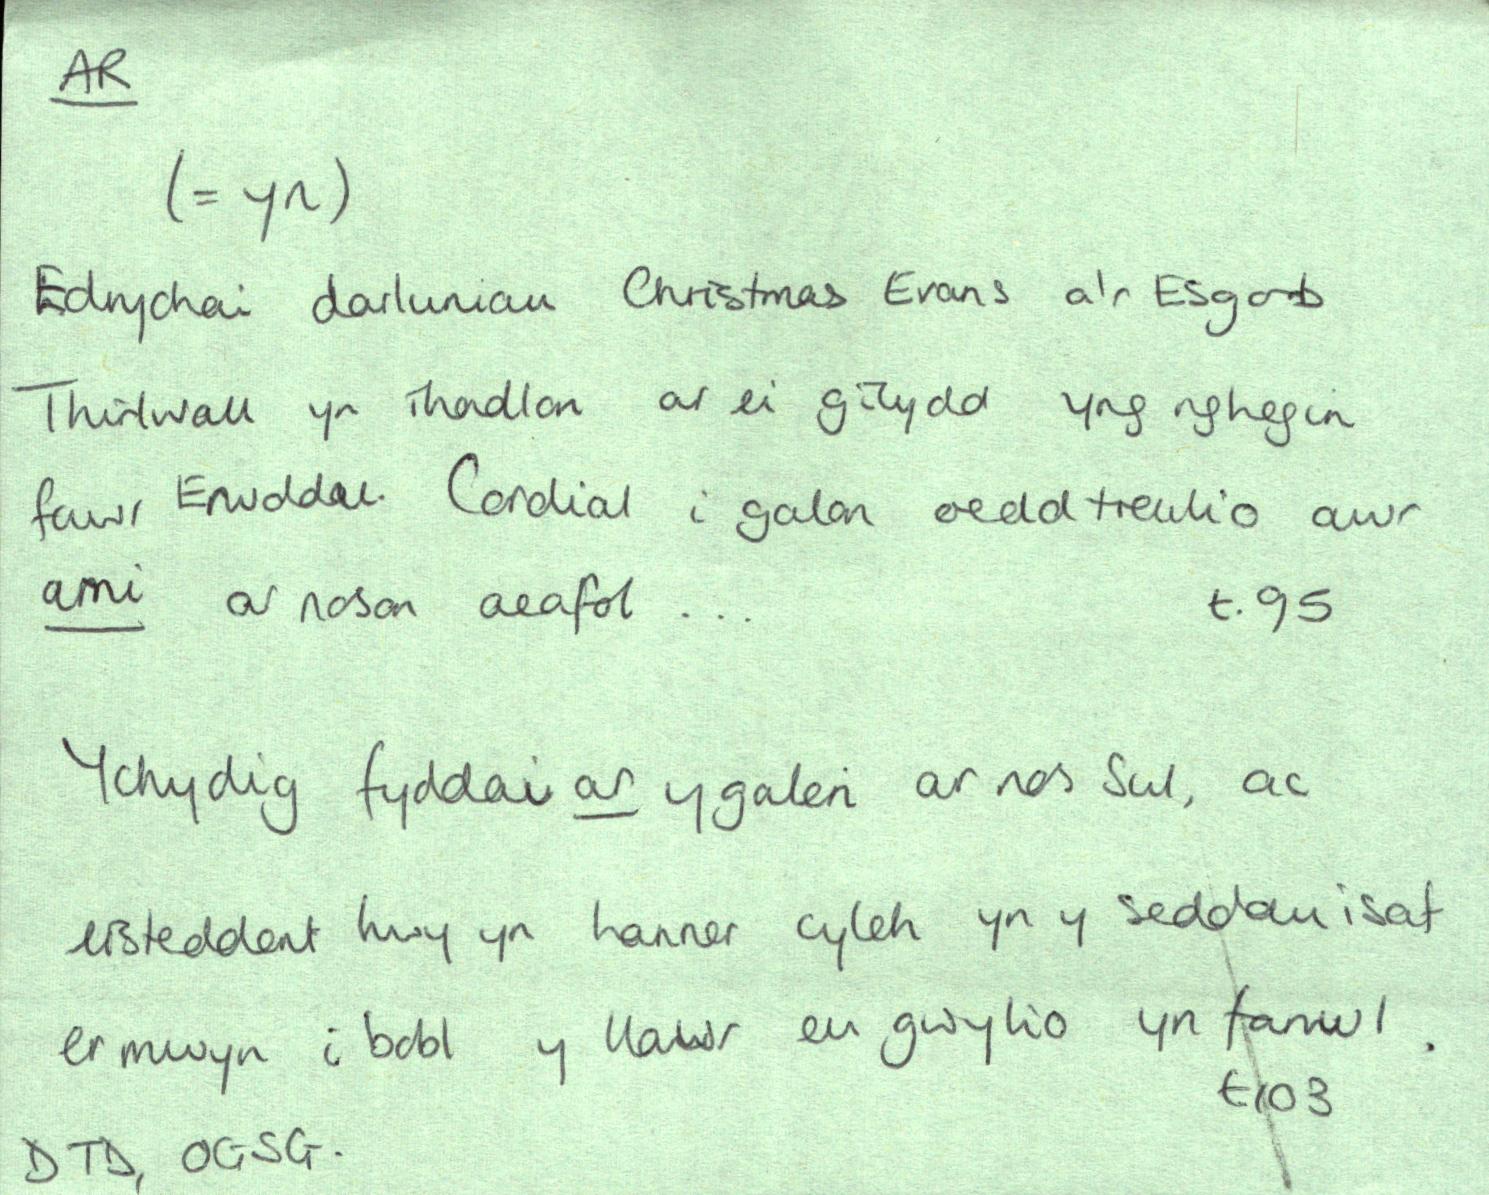 AR
(= yn)
Edrychai darluniau Christmas Evans a'r Esgob
Thirlwall yn ihadlon ar ei gilydd yng nghegin
fawr Erwddal. Cordial i galon oedd treulio awr
arni ar noson aeafol ... t. 95
Ychydig fyddai ar y galeri ar nos Sul, ac
eisteddent hwy yn hanner cylch yn y seddau isaf
er mwyn i bobl y llawr eu gwylio yn fanwl.
t.103
DTD, OGSG.